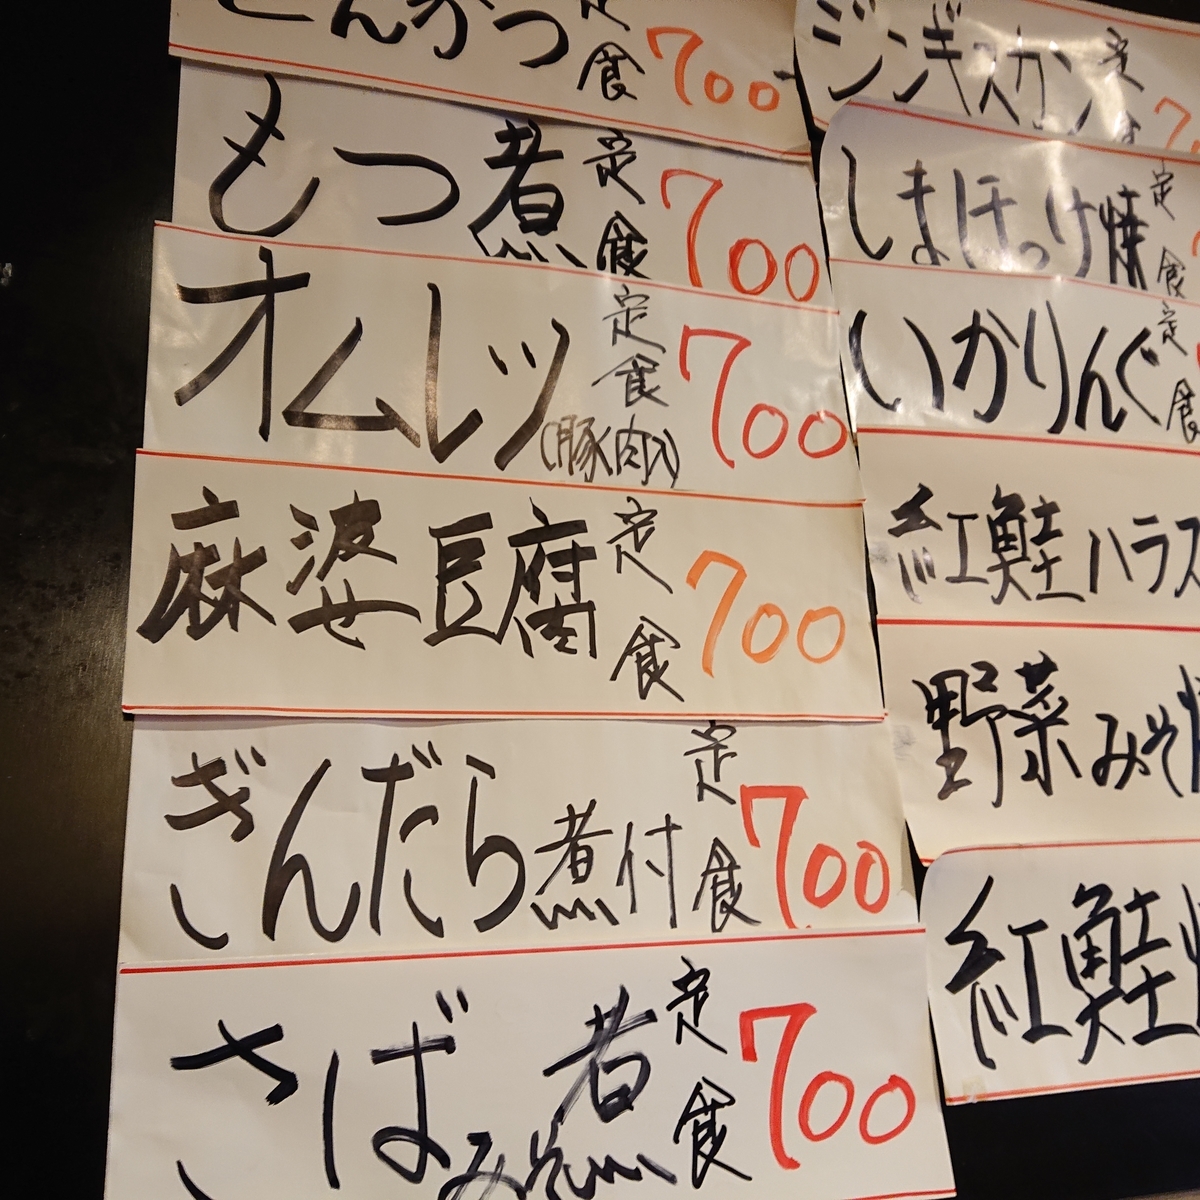 とんかつ定食 700
もつ煮定食 700
オムレツ定食(豚肉入) 700
麻婆豆腐定食 700
ぎんだら煮付定食 700
さばみそ煮定食 700
ジンギスカン定食 7
しまほっけ焼定食
いかりんぐ定食
紅鮭ハラス
野菜みそ
紅鮭